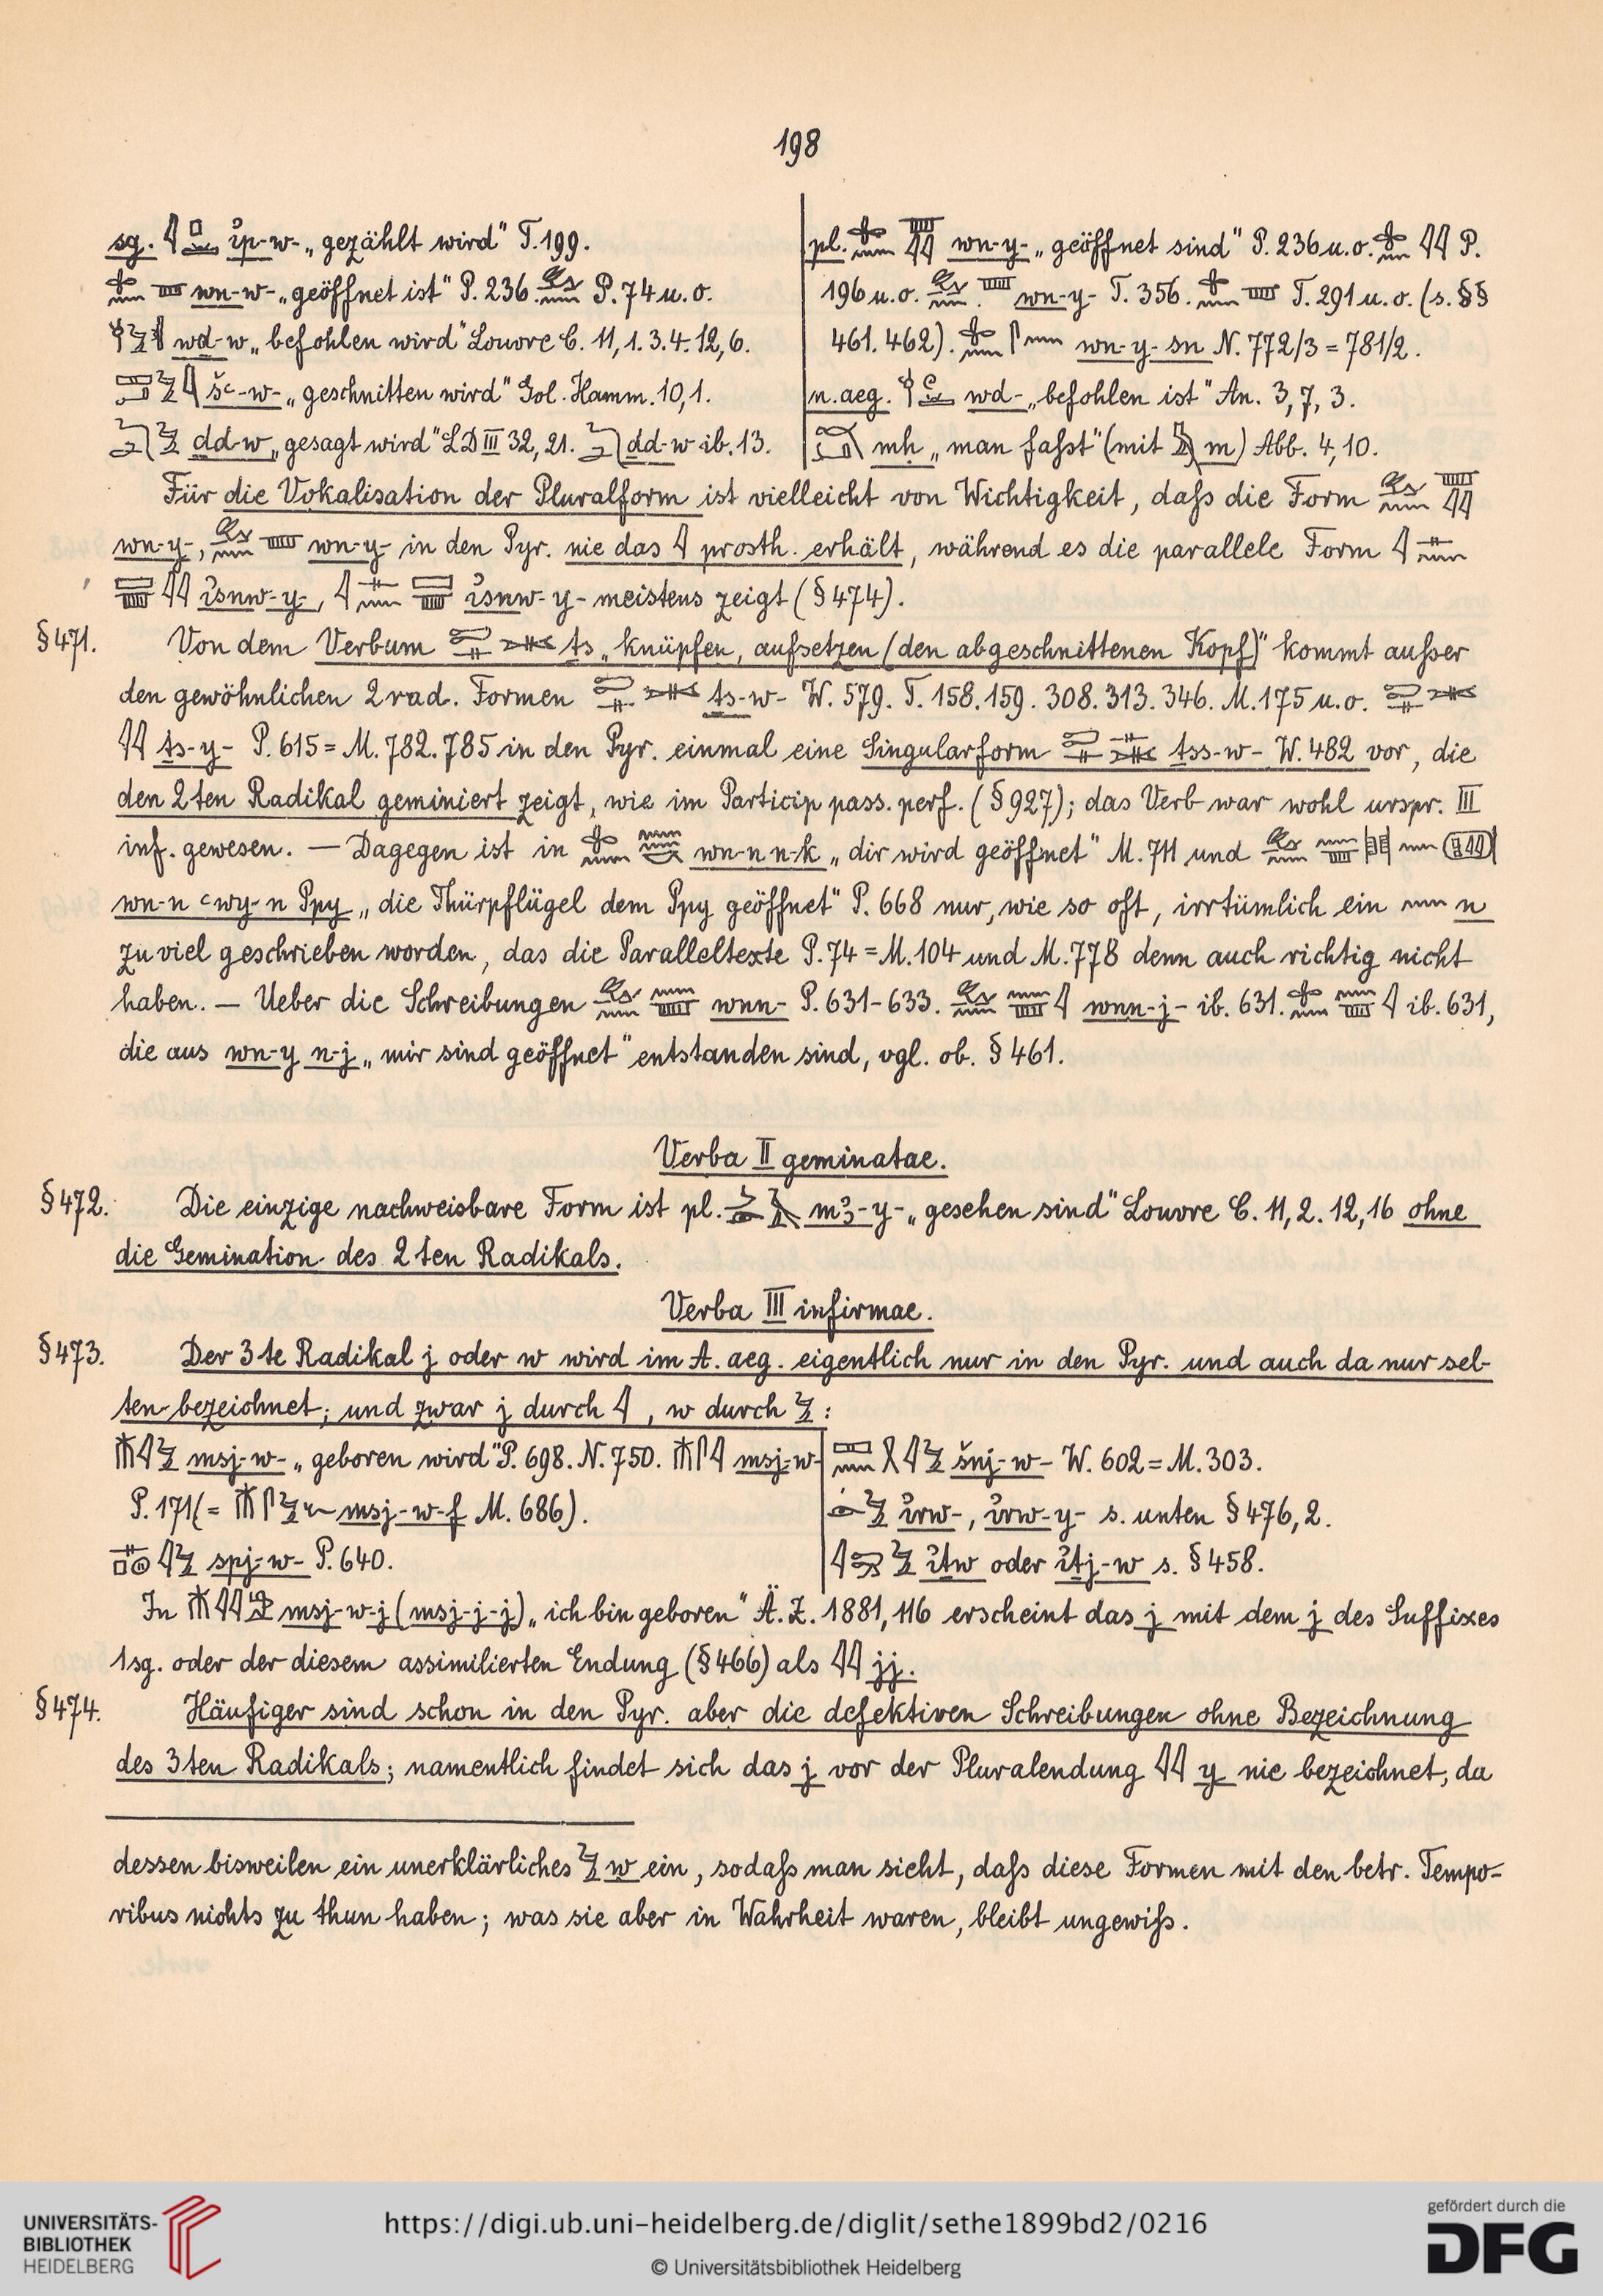 198
sg. ỉp-w- „gezählt wird" T. 199.
wn-w- „geöffnet ist" P. 236. P. 74 u. o.
wd-w „befohlen wird" Louvre C. 11, 1. 3. 4. 12, 6.
šꜥ-w- „geschnitten wird" Gol. Hamm. 10, 1.
dd-w „gesagt wird" LD III 32, 21. dd-w ib. 13.
pl. wn-y- „geöffnet sind" P. 236 u. o. P.
196 u. o. wn-y- T. 356. T. 291 u. o. (s. §§
461. 462). wn-y-sn N. 772/3 = 781/2.
n. aeg. wd- „befohlen ist" An. 3, 7, 3.
mh „man faßt" (mit m) Abb. 4, 10.
Für die Vokalisation der Pluralform ist vielleicht von Wichtigkeit, daß die Form
wn-y-, wn-y- in den Pyr. nie das prosth. erhält, während es die parallele Form
ỉsnw-y-, ỉsnw-y- meistens zeigt (§ 474).
§ 471. Von dem Verbum ts „knüpfen, aufsetzen (den abgeschnittenen Kopf)" kommt außer
den gewöhnlichen 2rad. Formen ts-w- W. 579. T. 158. 159. 308. 313. 346. M. 175 u. o.
ts-y- P. 615 = M. 782. 785 in den Pyr. einmal eine Singularform tss-w- W. 482 vor, die
den 2ten Radikal geminiert zeigt, wie im Particip pass. perf. (§ 927); das Verb war wohl urspr. III
inf. gewesen. — Dagegen ist in wn-n n-k „dir wird geöffnet" M. 711 und
wn-n ꜥwy-n Ppy „die Thürpflügel dem Ppy geöffnet" P. 668 nur, wie so oft, irrtümlich ein n
zu viel geschrieben worden, das die Paralleltexte P. 74 = M. 104 und M. 778 denn auch richtig nicht
haben. — Ueber die Schreibungen wnn- P. 631-633. wnn-j- ib. 631. ib. 631,
die aus wn-y n-j „mir sind geöffnet" entstanden sind, vgl. ob. § 461.
Verba II geminatae.
§ 472. Die einzige nachweisbare Form ist pl. mꜣ-y- „gesehen sind" Louvre C. 11, 2. 12, 16 ohne
die Gemination des 2ten Radikals.
Verba III infirmae.
§ 473. Der 3te Radikal j oder w wird im A. aeg. eigentlich nur in den Pyr. und auch da nur sel-
ten bezeichnet; und zwar j durch , w durch :
msj-w- „geboren wird" P. 698. N. 750. msj-w-
P. 171 (= msj-w-f M. 686).
spj-w- P. 640.
šnj-w- W. 602 = M. 303.
ỉrw-, ỉrw-y- s. unten § 476, 2.
ỉtw oder ỉtj-w s. § 458.
In msj-w-j (msj-j-j) „ich bin geboren" Ä. Z. 1881, 116 erscheint das j mit dem j des Suffixes
1sg. oder der diesem assimilierten Endung (§ 466) als jj.
§ 474. Häufiger sind schon in den Pyr. aber die defektiven Schreibungen ohne Bezeichnung
des 3ten Radikals; namentlich findet sich das j vor der Pluralendung y nie bezeichnet, da
dessen bisweilen ein unerklärliches w ein, sodaß man sieht, daß diese Formen mit den betr. Tempo-
ribus nichts zu thun haben; was sie aber in Wahrheit waren, bleibt ungewiß.
UNIVERSITÄTS-
BIBLIOTHEK
HEIDELBERG
https://digi.ub.uni-heidelberg.de/diglit/sethe1899bd2/0216
© Universitätsbibliothek Heidelberg
gefördert durch die
DFG